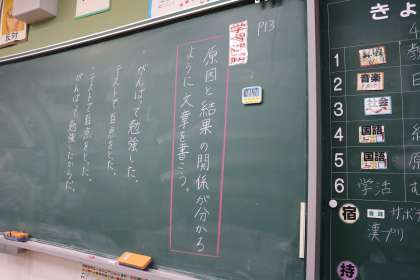 P13
学習課題
原因と結果の関係が分かる
ように文章を書こう。
がんばって勉強した。
テストで百点をとった。
テストで百点をとった。
がんばって勉強したからだ。
反対
きょ
1
2 音楽
3 社会
4 国語
5 国語
6 学活
宿
漢プリ
持